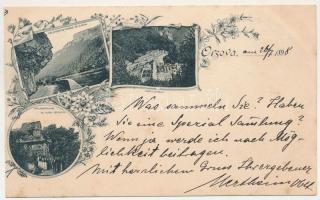 Orsova, am 26/7 1898
Was sammeln Sie? Haben
Sie eine Spezial Samlung?
Wenn ja werde ich nach Mög-
lichkeit beitragen.
Mit herzlichem Gruss Ihr ergebener
Wertheim